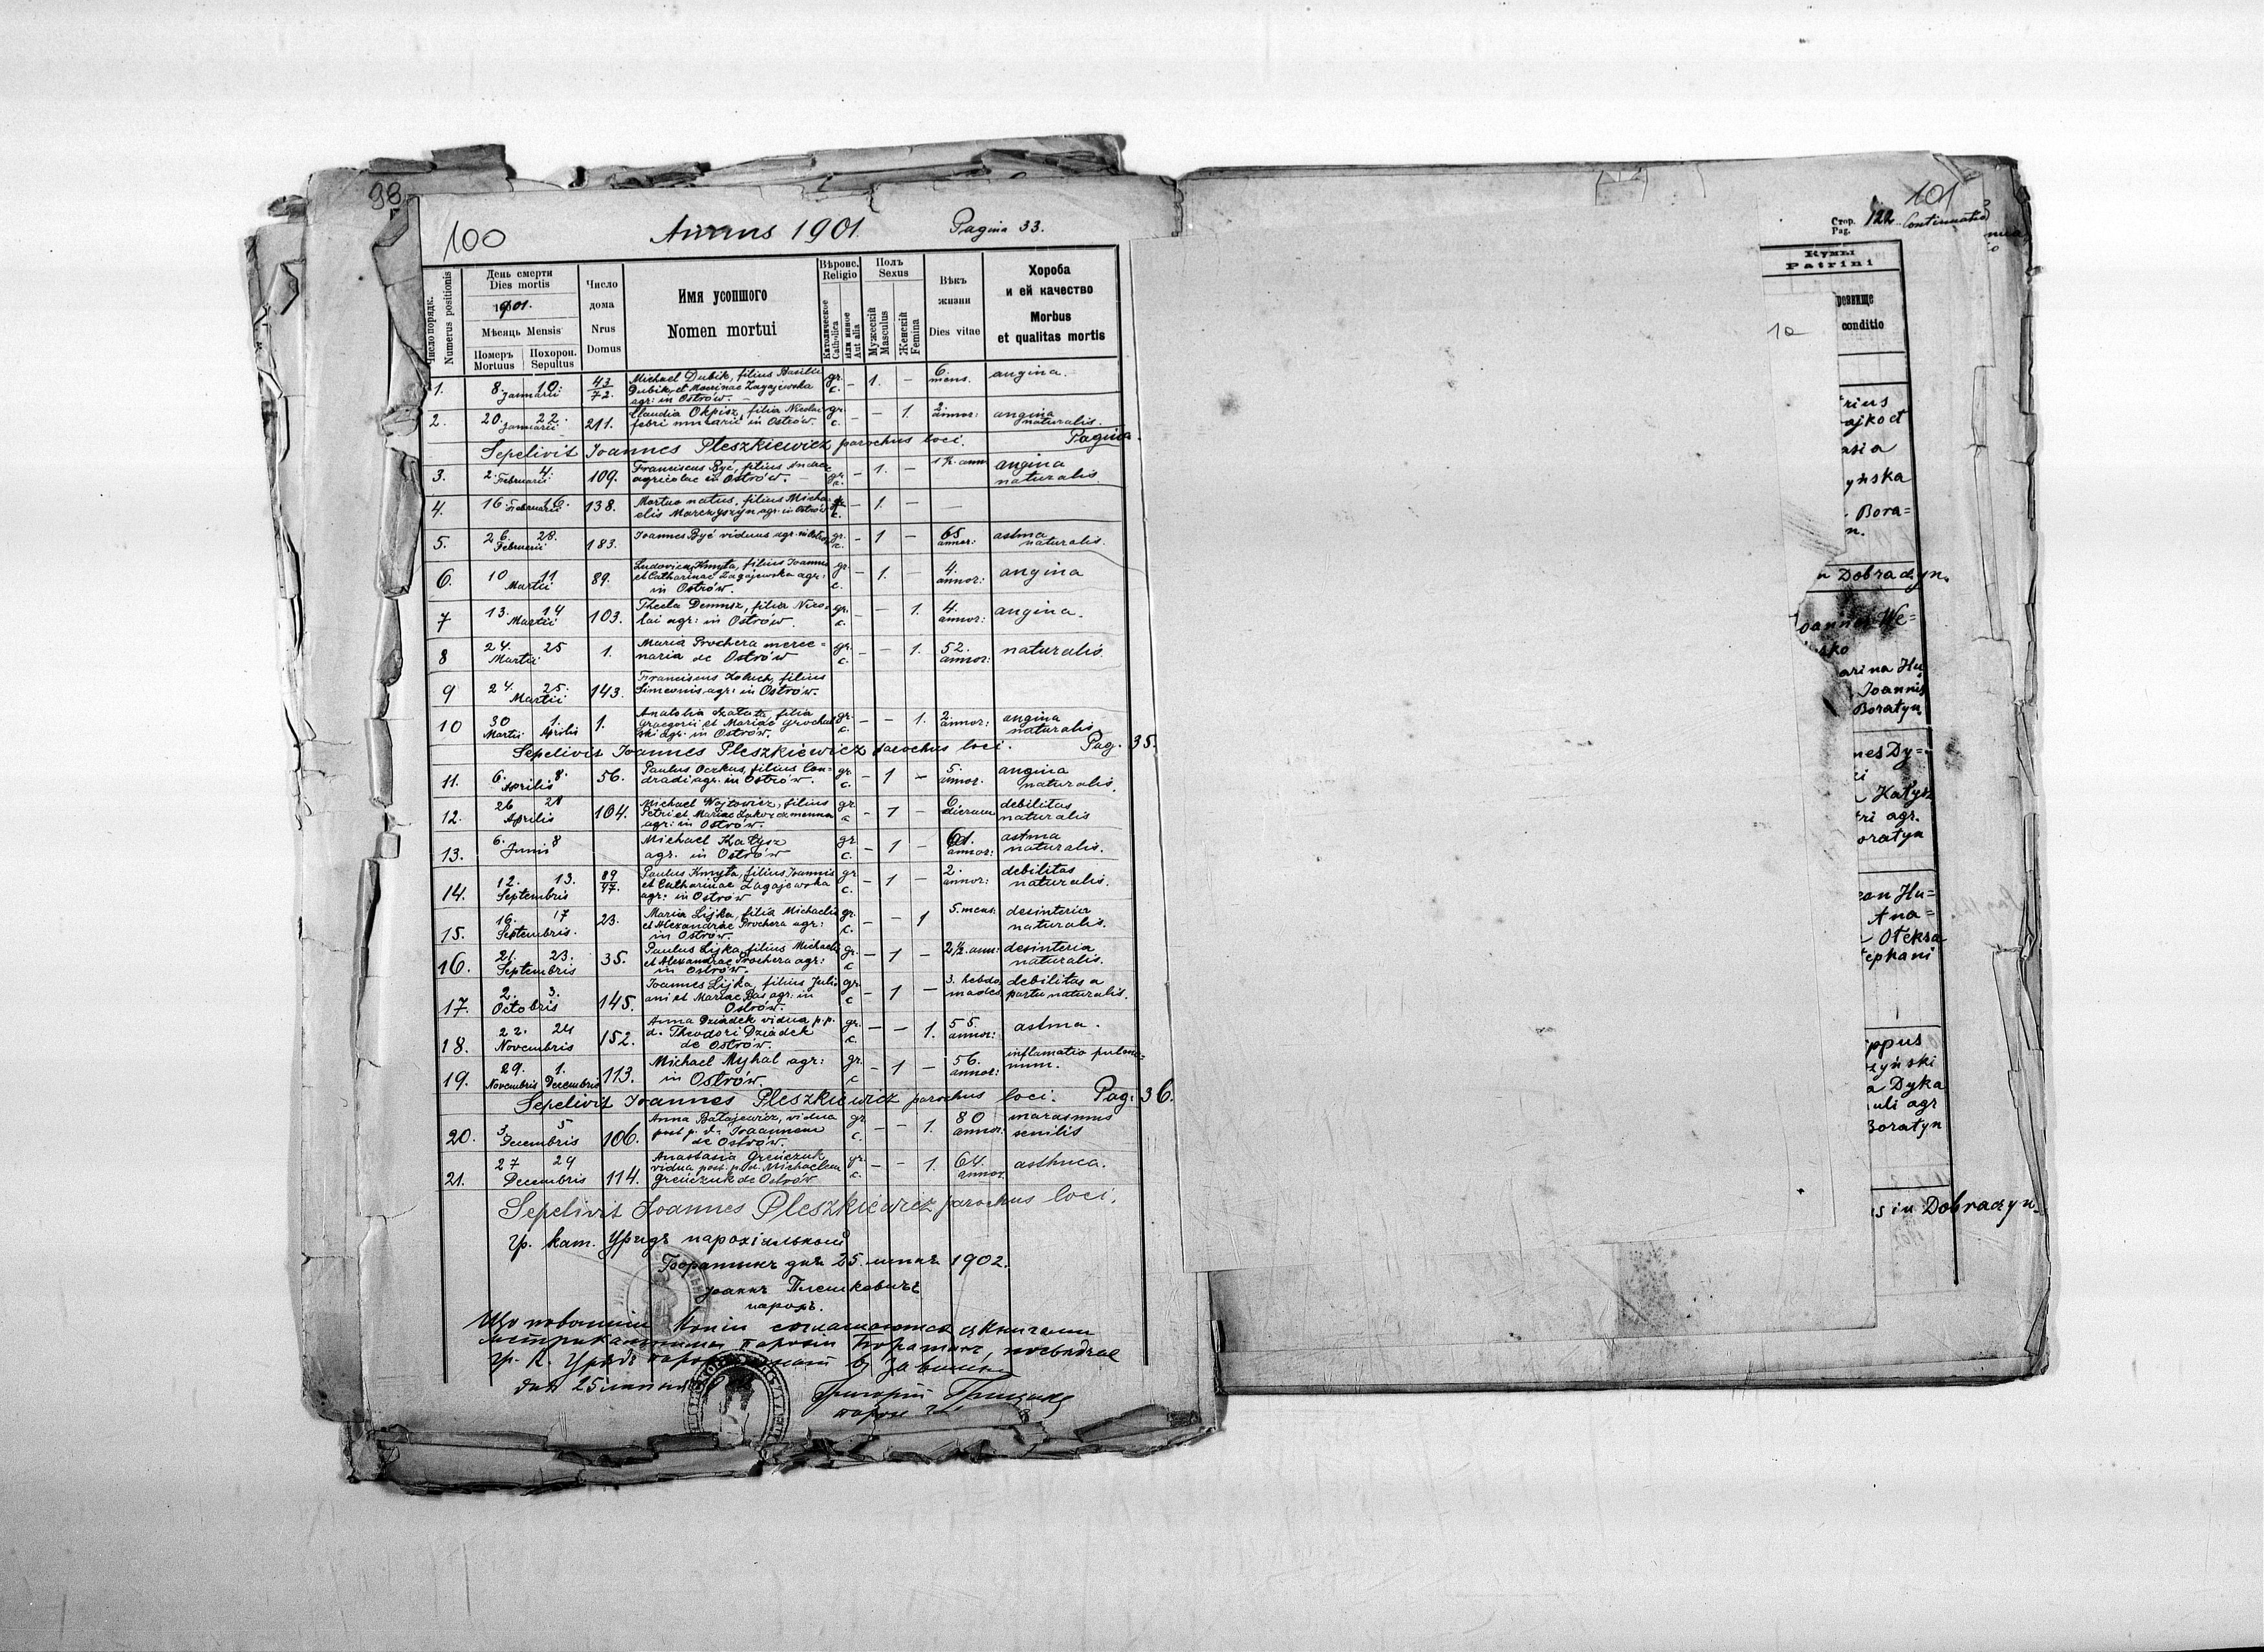 98
100
Annus 1901.
Pagina 33.
Число порядк.
Numerus positionis
День смерти
Dies mortis
1901.
Мѣсяць Mensis
Померъ
Mortuus
Похорон.
Sepultus
Число
дома
Nrus
Domus
Имя усопшого
Nomen mortui
Вѣроис.
Religio
Католическое
Catholica
или иное
Aut alia
Полъ
Sexus
Мужескій
Masculus
Женскій
Femina
Вѣкъ
жизни
Dies vitae
Хороба
и ей качество
Morbus
et qualitas mortis
1. 8. 10. 43 Michael Dubik, filius Basilii gr. 1. 6. angina.
Januarii 72. Dubik, et Marinae Zagajewska c. mens.
agr: in Ostrów.
2. 20. 22. 211. Claudia Okpisz, filia Nicolai gr. 1. 2 angina
Januarii fabri murarii in Ostrów. c. annor: naturalis.
Sepelivit Joannes Pleszkiewicz parochus loci. Pagina
3. 2. 4. 109. Franciscus Być, filius Andreae gr. 1. 1½ ann angina
Februarii agricolae in Ostrów. c. naturalis
4. 16. 16. 138. Mortuo natus, filius Micha- gr. 1.
Februarii elis Marczyszyn agr. in Ostrów c.
5. 26. 28. 183. Joannes Być viduus agr. in Ostrów gr. 1 65 astma
Februarii c. annor: naturalis.
6. 10 11 89. Ludovicus Kmyta, filius Joannis gr. 1. 4. angina
Martii et Catharinae Zagajewska agr: c. annor:
in Ostrów.
7 13. 14 103. Thecla Demusz, filia Nico- gr. 1. 4. angina.
Martii lai agr: in Ostrów. c. annor:
8 24. 25 1. Maria Prochera merce- gr. 1. 52. naturalis.
Martii naria de Ostrów c. annor:
9 24. 25. 143. Franciscus filius
Martii Simeonis agr: in Ostrów.
10 30 1. 1. Anatolia filia gr. 1. 2. angina
Martii Aprilis Gregorii et Mariae Grochal c. annor: naturalis
ski agr. in Ostrów.
Sepelivit Joannes Pleszkiewicz parochus loci. Pag. 35.
11. 6. 8. 56. Paulus Oczkus, filius Con- gr. 1 5. angina
Aprilis dradi agr. in Ostrów. c. annor. naturalis.
12. 26 28 104. Michael Wojtowicz, filius gr 1 6 debilitas
Aprilis Petri et Mariae c dierum naturalis
agr: in Ostrów.
13. 6. 8 Michael Kałysz gr 1 61. astma
Junii agr. in Ostrów c. annor: naturalis.
14. 12. 13. 89 Paulus Kmyta, filius Joannis gr 1 2. debilitas
Septembris 47. et Catharinae Zagajewska c. annor: naturalis.
agr: in Ostrów
15. 16. 17 23. Maria Lijka, filia Michaelis gr. 1 5. mens. desinteria
Septembris. et Alexandrae Prochera agr: c. naturalis.
in Ostrów.
16. 21. 23. 35. Paulus Lijka, filius Michaelis gr. 1 2½. ann: desinteria
Septembris et Alexandrae Prochera agr: c naturalis.
in Ostrów.
17. 2. 3. 145. Joannes Lijka, filius Juli gr 1 3. hebdo debilitas a
Octobris ani et Mariae Bas agr: in c mades partu naturalis.
Ostrów.
18. 22. 24 152. Anna Dziadek vidua p.p. gr. 1. 55. astma.
Novembris d. Theodori Dziadek c. annor:
de Ostrów.
19. 29. 1. 113. Michael Myhal agr: gr. 1 56. inflamatio pulmo-
Novembris Decembris in Ostrów. c annor: num.
Sepelivit Joannes Pleszkiewicz parochus loci. Pag: 36.
20. 3. 5 106. Anna Bałajewicz, vidua gr 1. 80 marasmus
Decembris post p. d. Joannem c. annor: senilis
de Ostrów.
21. 27 29 114. Anastasia Greńczuk gr. 1. 64. asthma.
Decembris vidua post. p. d. Michaelem c. annor.
Greńczuk de Ostrów
Sepelivit Joannes Pleszkiewicz parochus loci.
Гр. кат. Урядъ парохіяльный
Боратинъ дня 25. мая 1902.
Іоаннъ Плешкевичъ
парохъ.
101
Стор.
Pag. 122. Continuatio
Кумы
Patrini
10
conditio
ajko et
asia
yńska
Bora=
n.
Dobraczyn.
Joannes We=
sko
arina Hu
Joannis
Boratyn
nes Dy=
Kałysz
tri agr.
oratyn
ean Hu=
Ana=
Oleksa
tephani
ppus
zyński
a Dyka
uli agr
Boratyn
is in Dobraczyn.